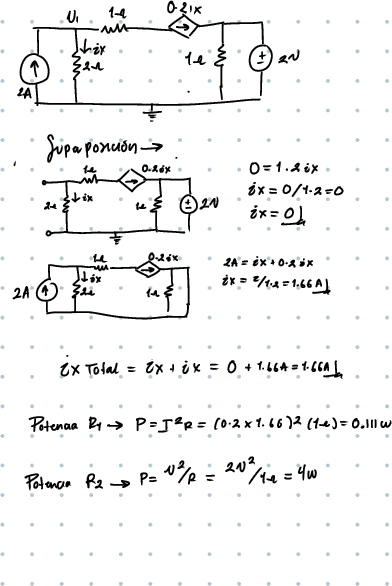 V1 1Ω 0.2ix
↓ix
2Ω 1Ω 2V
2A
Superposición →
1Ω 0.2ix
2Ω ↓ix 1Ω 2V
0 = 1.2ix
ix = 0/1.2 = 0
ix = 0
1Ω 0.2ix
2A ↓ix 2Ω 1Ω
2A = ix + 0.2ix
ix = 2/1.2 = 1.66A
ix Total = ix + ix = 0 + 1.66A = 1.66A
Potencia R1 → P = I²R = (0.2 x 1.66)² (1Ω) = 0.111w
Potencia R2 → P = V²/R = 2V²/1Ω = 4w